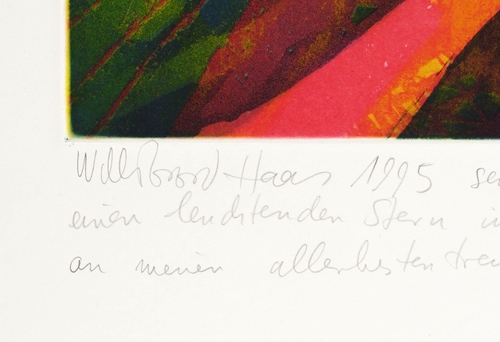 Willibrord Haas 1995 se
einen leuchtenden Stern i
an meinen allerbesten